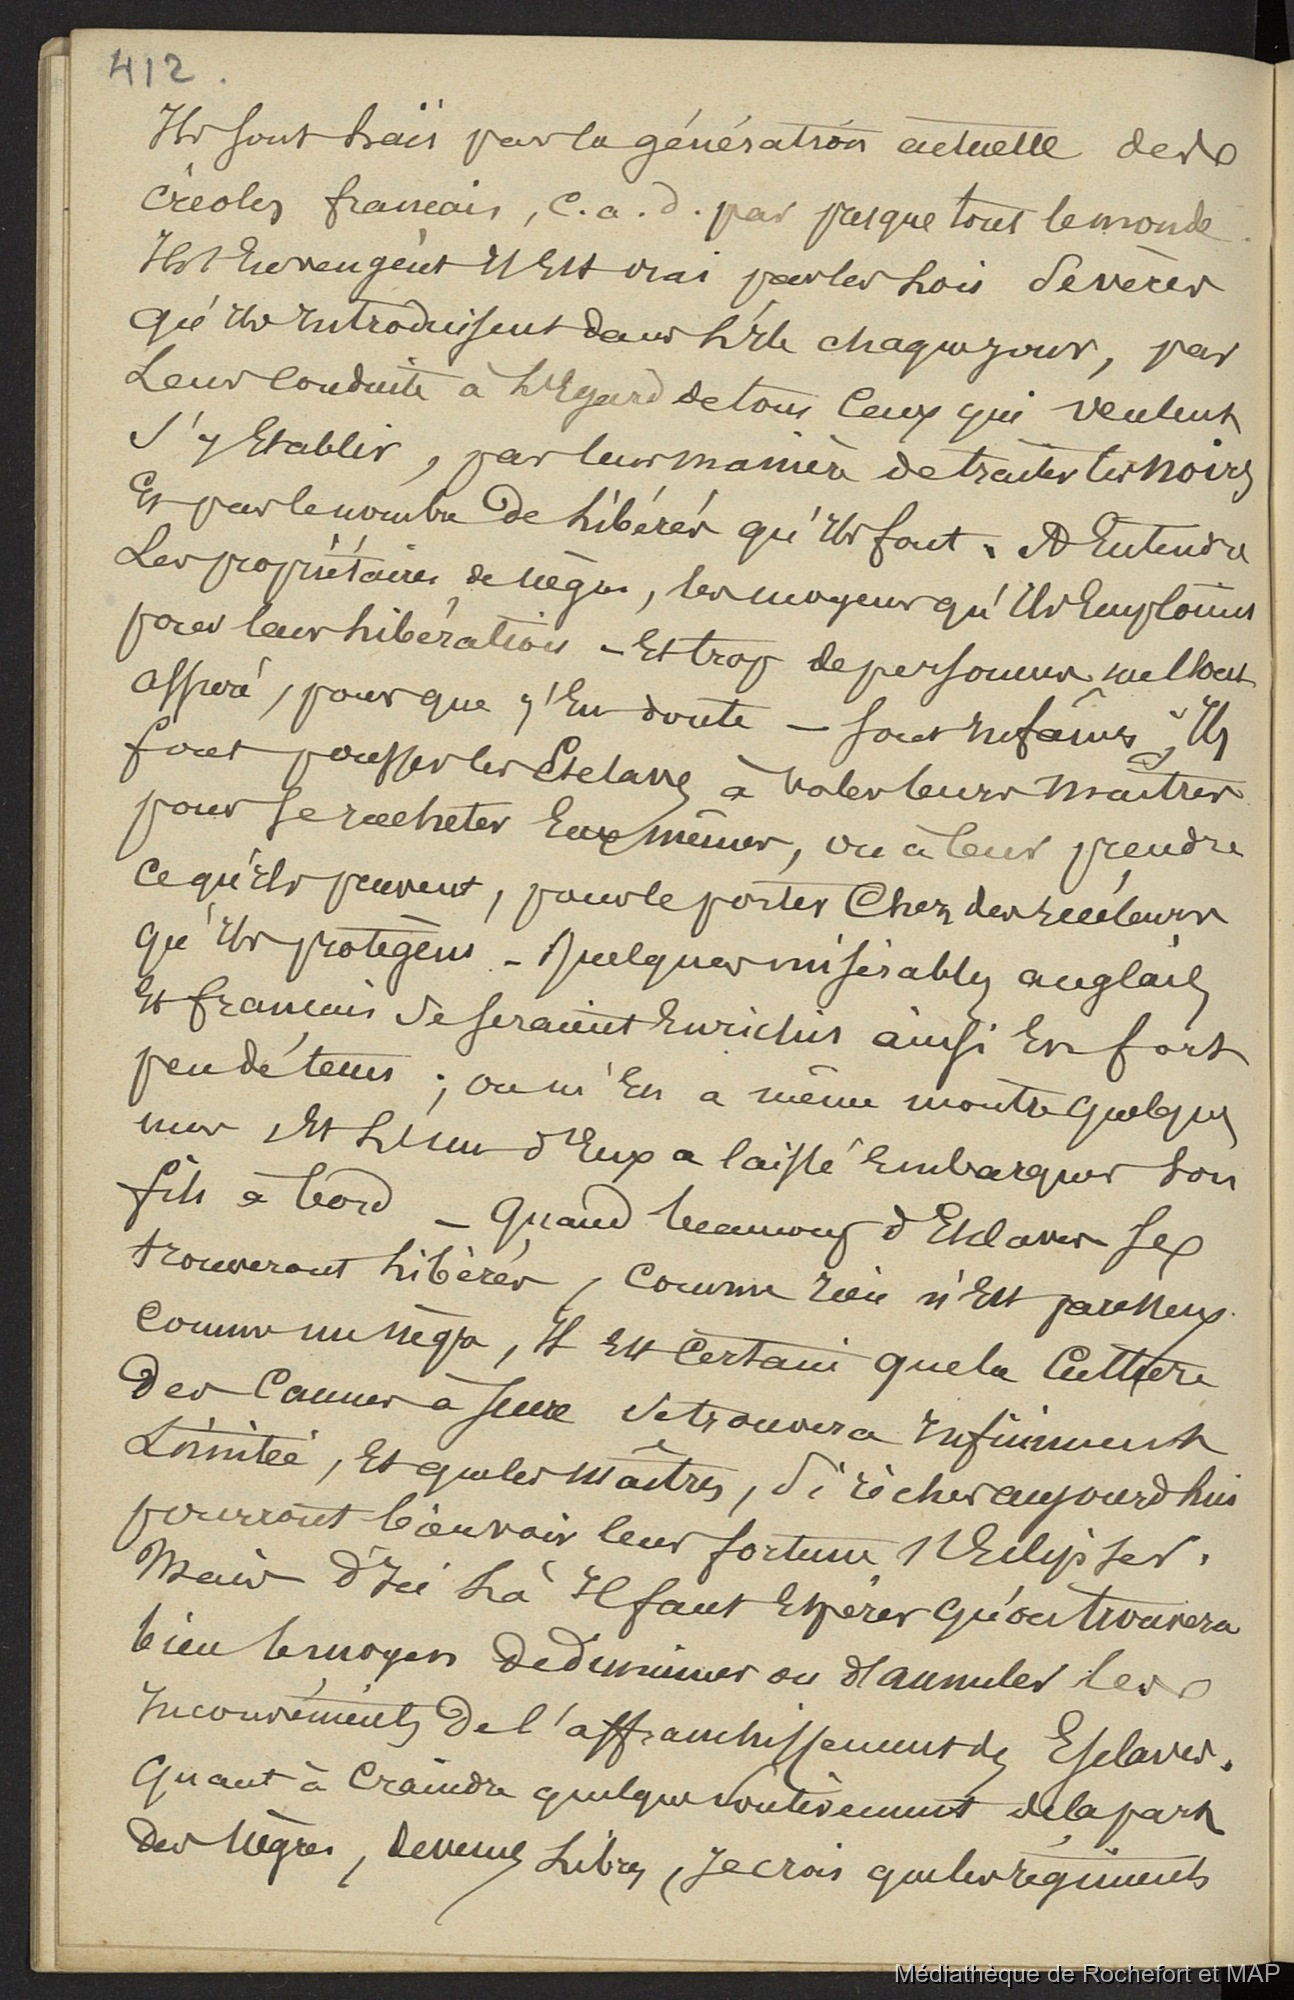 412.
Ils sont haïs par la génération actuelle des
créoles français, c.a.d. par presque tout le monde.
Ils s'en vengent il est vrai par les lois sévères
qu'ils introduisent dans l'île chaque jour, par
leur conduite à l'égard de tous ceux qui veulent
s'y établir, par leur manière de traiter les noirs
et par le nombre de libérés qu'ils font. A entendre
les propriétaires de nègres, les moyens qu'ils emploient
pour leur libération - et trop de personnes me l'ont
assuré, pour que j'en doute - sont infâmes; Ils
font pousser les Esclaves à voler leurs maîtres
pour se racheter Eux mêmes, ou à leur prendre
ce qu'ils peuvent, pour le porter chez des recéleurs
qu'ils protègent - Quelques misérables anglais
et français se seraient enrichis ainsi en fort
peu de tems; on m'en a même montré quelques
uns, et l'un d'Eux a laissé embarquer son
fils à bord - Quand beaucoup d'Esclaves se
trouveront libérés, comme rien n'est paresseux
comme un nègre, il est certain que la culture
des cannes à sucre se trouvera infiniment
limitée, et que les maîtres, si riches aujourd'hui
pourront bien voir leur fortune s'éclipser.
Mais d'ici là il faut espérer qu'on trouvera
bien le moyen de diminuer ou d'annuler les
inconvénients de l'affranchissement des Esclaves.
Quant à craindre quelque soulèvement de la part
des nègres, devenus libres, je crois que les régiments
Médiathèque de Rochefort et MAP